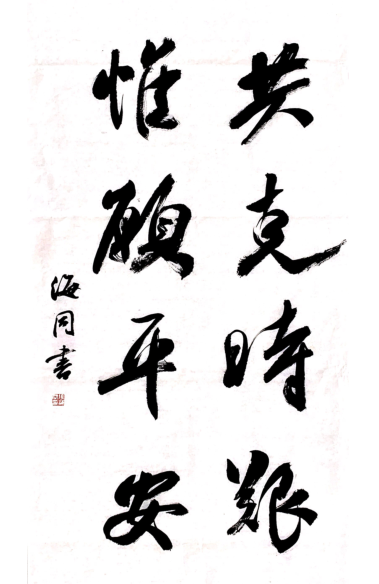 共克時艱
惟願平安
海同書